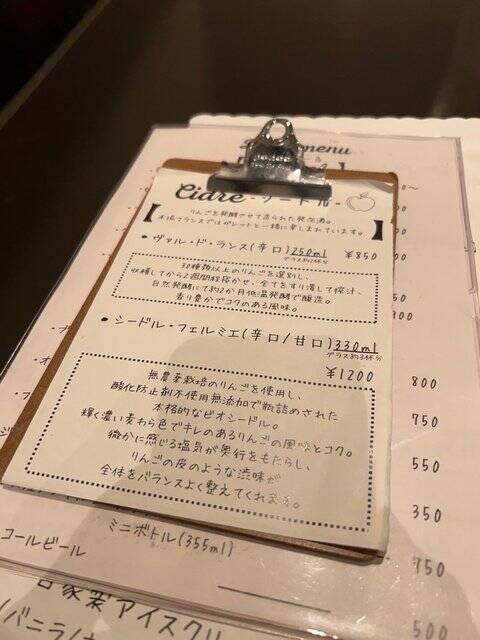 menu
Cidre - シードル -
りんごを発酵させて造られた発泡酒。
本場フランスではガレットと一緒に楽しまれています。
• ヴァル・ド・ランス(辛口)250ml ¥850
グラス約2杯分
30種類以上のりんごを選別し、
収穫してから2週間程寝かせ、全てをすり潰して搾汁、
自然発酵にて約2か月低温発酵で醸造。
香り豊かでコクのある風味。
• シードル・フェルミエ(辛口/甘口)330ml
グラス約3杯分
¥1200
無農薬栽培のりんごを使用し、
酸化防止剤不使用無添加で瓶詰めされた
本格的なビオシードル。
輝く濃い麦わら色でキレのあるりんごの風味とコク。
微かに感じる塩気が奥行をもたらし、
りんごの皮のような渋味が
全体をバランスよく整えてくれます。
800
750
550
350
ミニボトル(355ml)
コールビール
750
自家製アイスクリ
バニラ
500